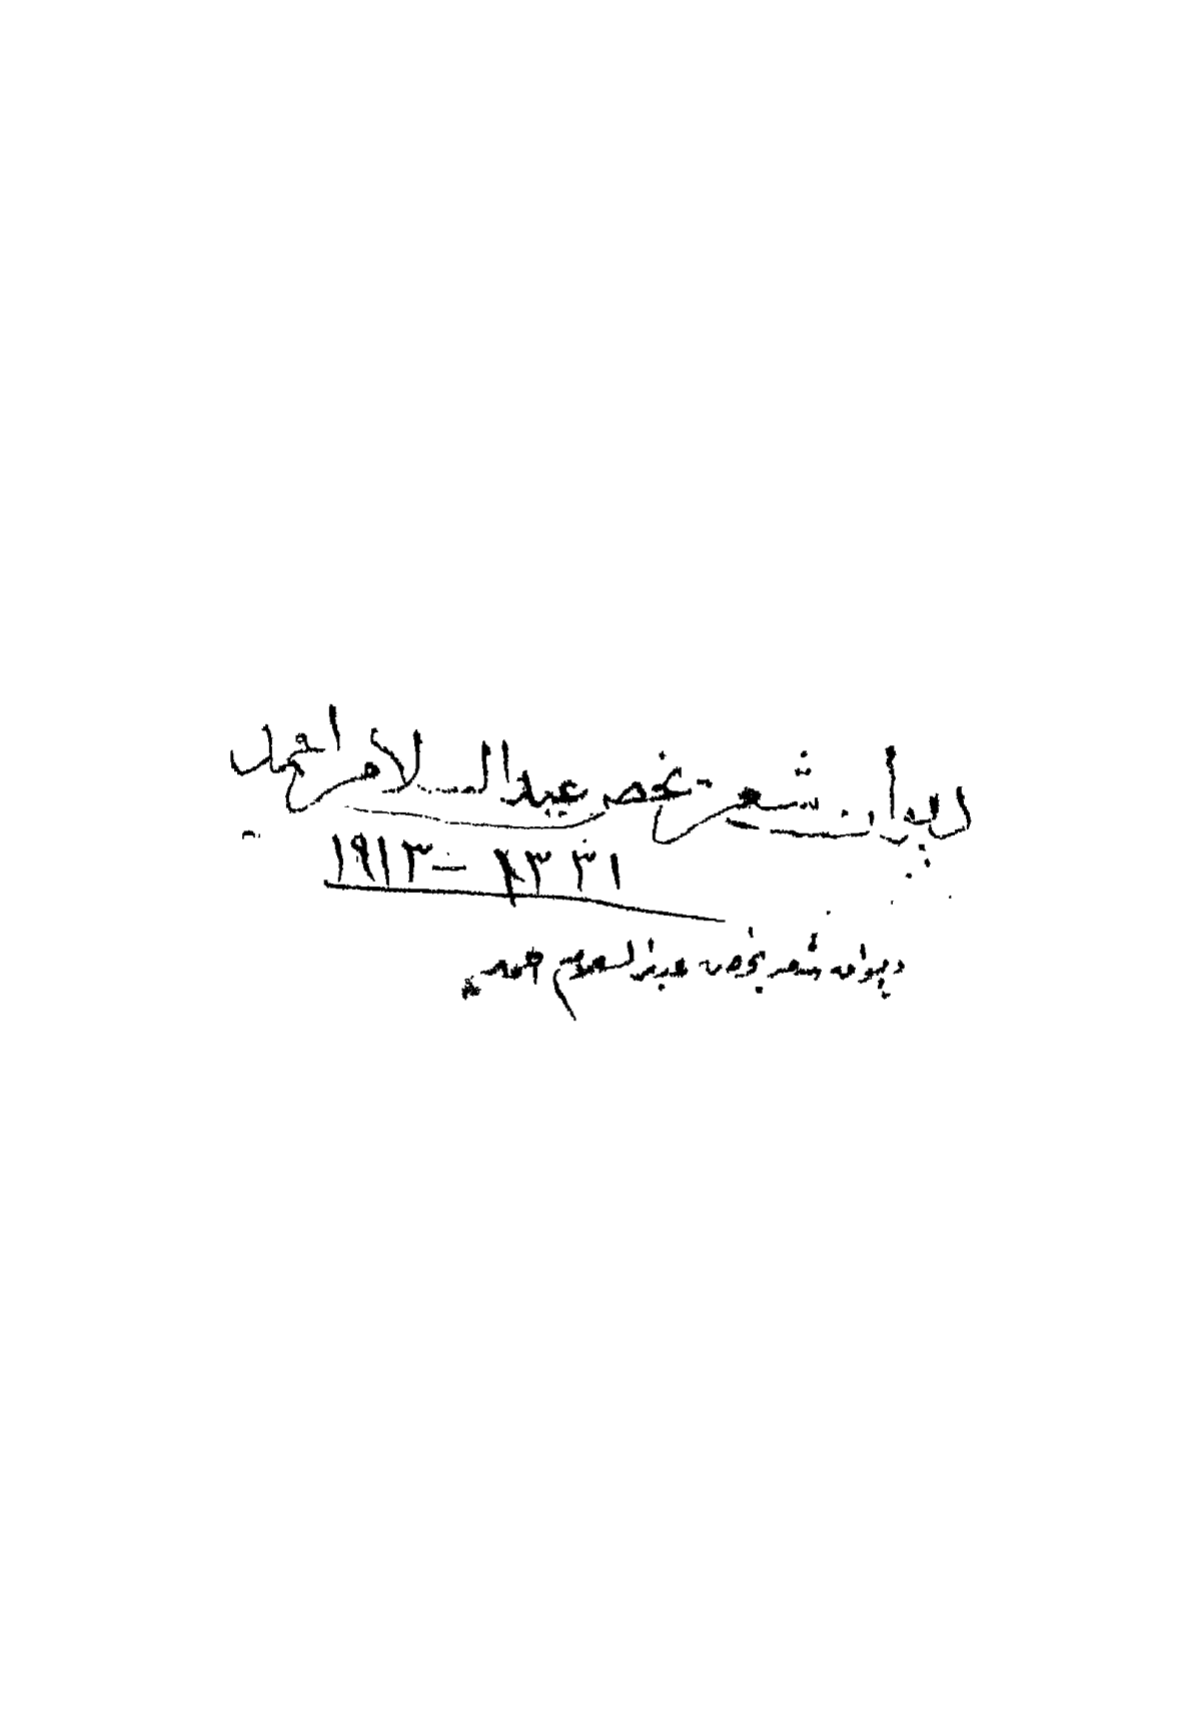 ديوان شعر يخص عبد السلام احمد
١٣٣١ - ١٩١٣
ديوان شعر يخص عبد السلام احمد